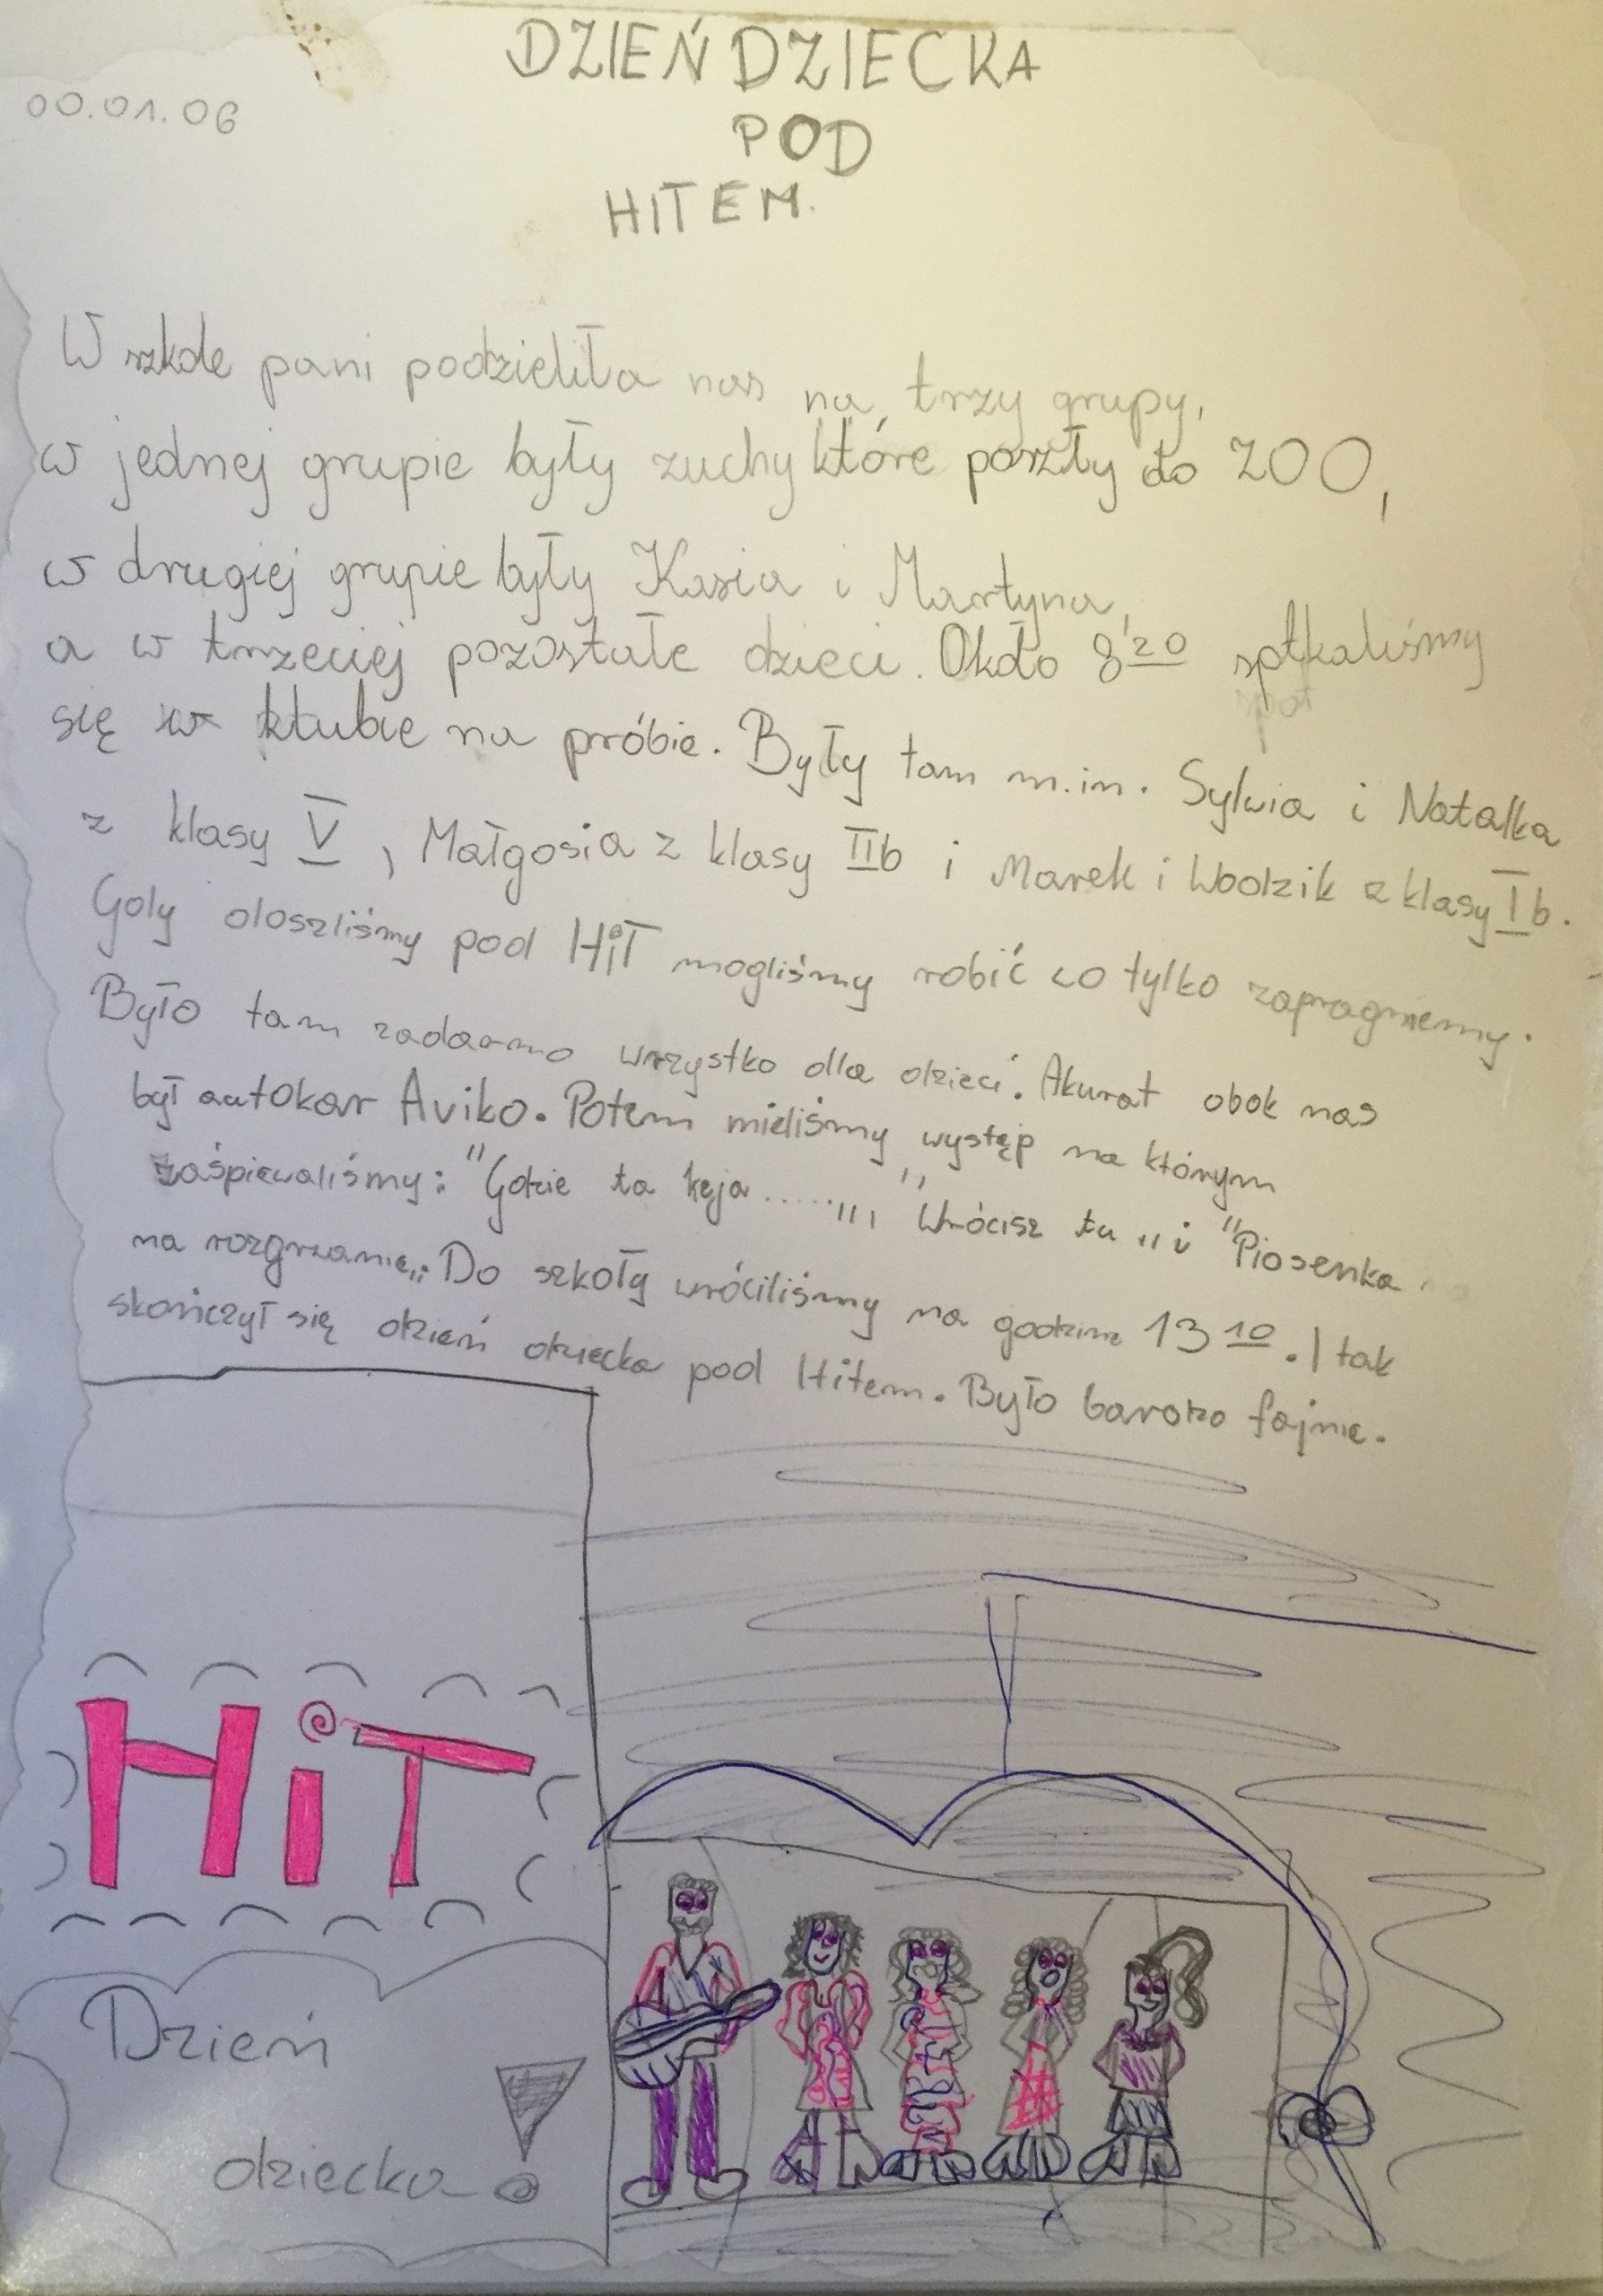 DZIEŃ DZIECKA
00.01.06
POD
HITEM.
W szkole pani podzieliła nas na trzy grupy,
w jednej grupie były zuchy które poszły do ZOO,
w drugiej grupie były Kasia i Martyna,
a w trzeciej pozostałe dzieci. Około 8 20 sptkaliśmy
spot
się w klubie na próbie. Były tam m.in. Sylwia i Natalka
z klasy V, Małgosia z klasy IIb i Marek i Włodzik z klasy Ib.
Gdy doszliśmy pod HiT mogliśmy robić co tylko zapragniemy.
Było tam zadarmo wszystko dla dzieci. Akurat obok nas
był autokar Aviko. Potem mieliśmy występ na którym
zaśpiewaliśmy: "Gdzie ta keja......,,, "Wrócisz tu ,, i "Piosenka
na rozgrzanie,,. Do szkoły wróciliśmy na godzine 13 10. I tak
skończył się dzień dziecka pod Hitem. Było bardzo fajnie.
HiT
Dzień
dziecka!